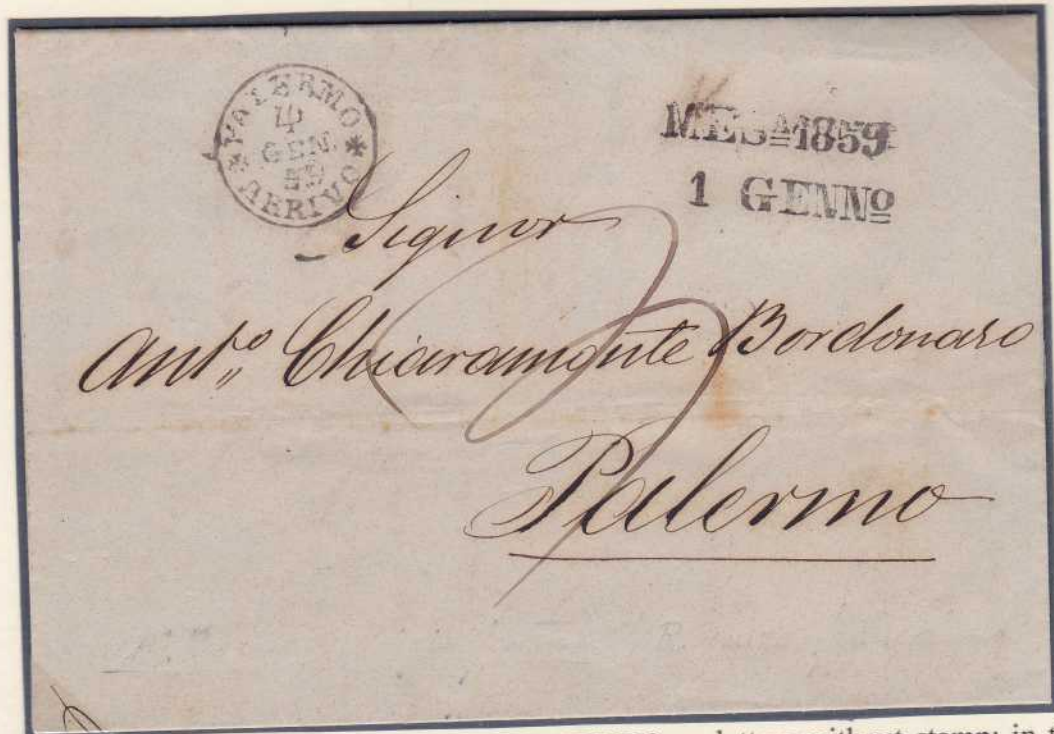 PALERMO
4
GEN.
59
ARRIVO
MESᴬ 1859
1 GENNº
Signor
Antº,, Chiaramonte Bordonaro
Palermo
letter without stamp: in